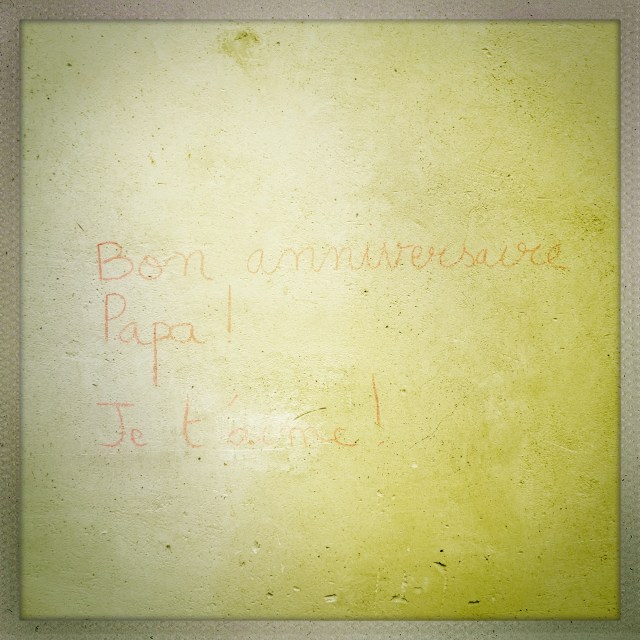 Bon anniversaire
Papa !
Je t'aime !